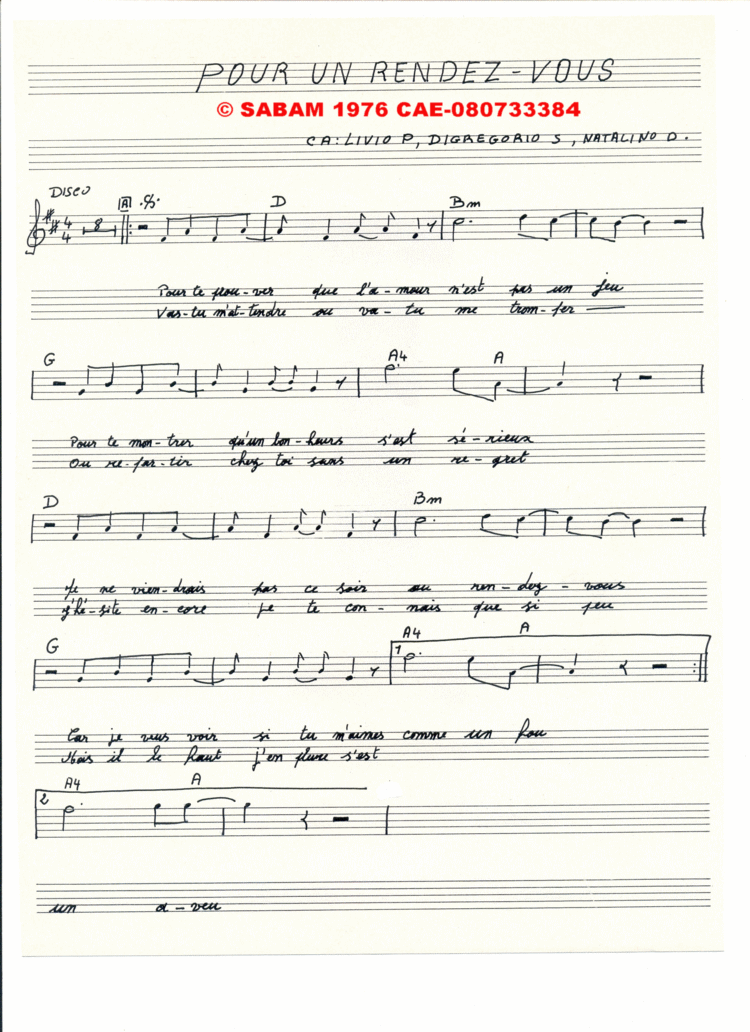 POUR UN RENDEZ-VOUS
© SABAM 1976 CAE-080733384
CA: LIVIO P, DIGREGORIO S, NATALINO D.
DISCO
A D Bm
4
4 8
Pour te prou-ver que l'a-mour n'est pas un jeu
Vas-tu m'at-tendre ou va-tu me trom-per
G A4 A
Pour te mon-trer qu'un bon-heurs s'est sé-rieux
Ou re-par-tir chez toi sans un re-gret
D Bm
Je ne vien-drais pas ce soir au ren-dez-vous
J'hé-site en-core je te con-nais que si peu
G A4 A
1
Car je veus voir si tu m'aimes comme un fou
Mais il le faut j'en pleure s'est
A4 A
2
un a-veu